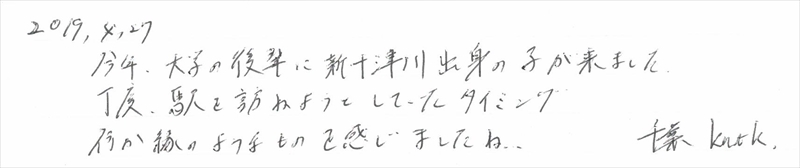 2019,4,27
今年、大学の後輩に新十津川出身の子が来ました。
丁度、駅を訪ねようとしていたタイミング
何か縁のようなものを感じましたね..
千葉 knt k.